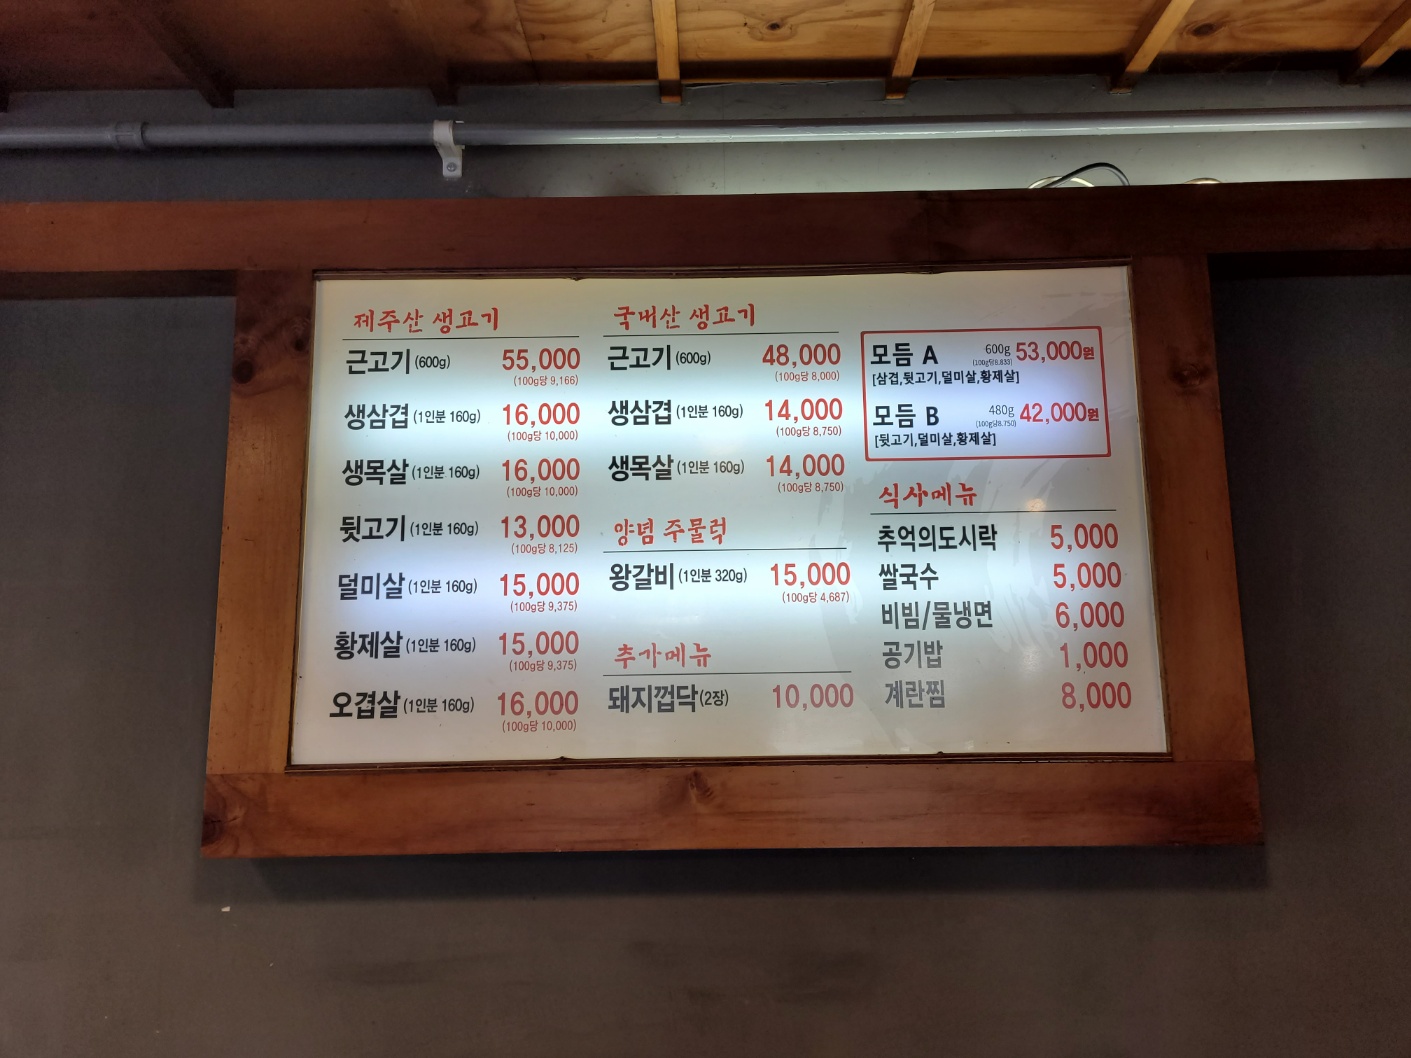 제주산 생고기
근고기 (600g) 55,000
(100g당 9,166)
생삼겹 (1인분 160g) 16,000
(100g당 10,000)
생목살 (1인분 160g) 16,000
(100g당 10,000)
뒷고기 (1인분 160g) 13,000
(100g당 8,125)
덜미살 (1인분 160g) 15,000
(100g당 9,375)
황제살 (1인분 160g) 15,000
(100g당 9,375)
오겹살 (1인분 160g) 16,000
(100g당 10,000)
국내산 생고기
근고기 (600g) 48,000
(100g당 8,000)
생삼겹 (1인분 160g) 14,000
(100g당 8,750)
생목살 (1인분 160g) 14,000
(100g당 8,750)
양념 주물럭
왕갈비 (1인분 320g) 15,000
(100g당 4,687)
추가메뉴
돼지껍닥 (2장) 10,000
모듬 A 600g 53,000원
(100g당8,833)
[삼겹,뒷고기,덜미살,황제살]
모듬 B 480g 42,000원
(100g당8,750)
[뒷고기,덜미살,황제살]
식사메뉴
추억의도시락 5,000
쌀국수 5,000
비빔/물냉면 6,000
공기밥 1,000
계란찜 8,000